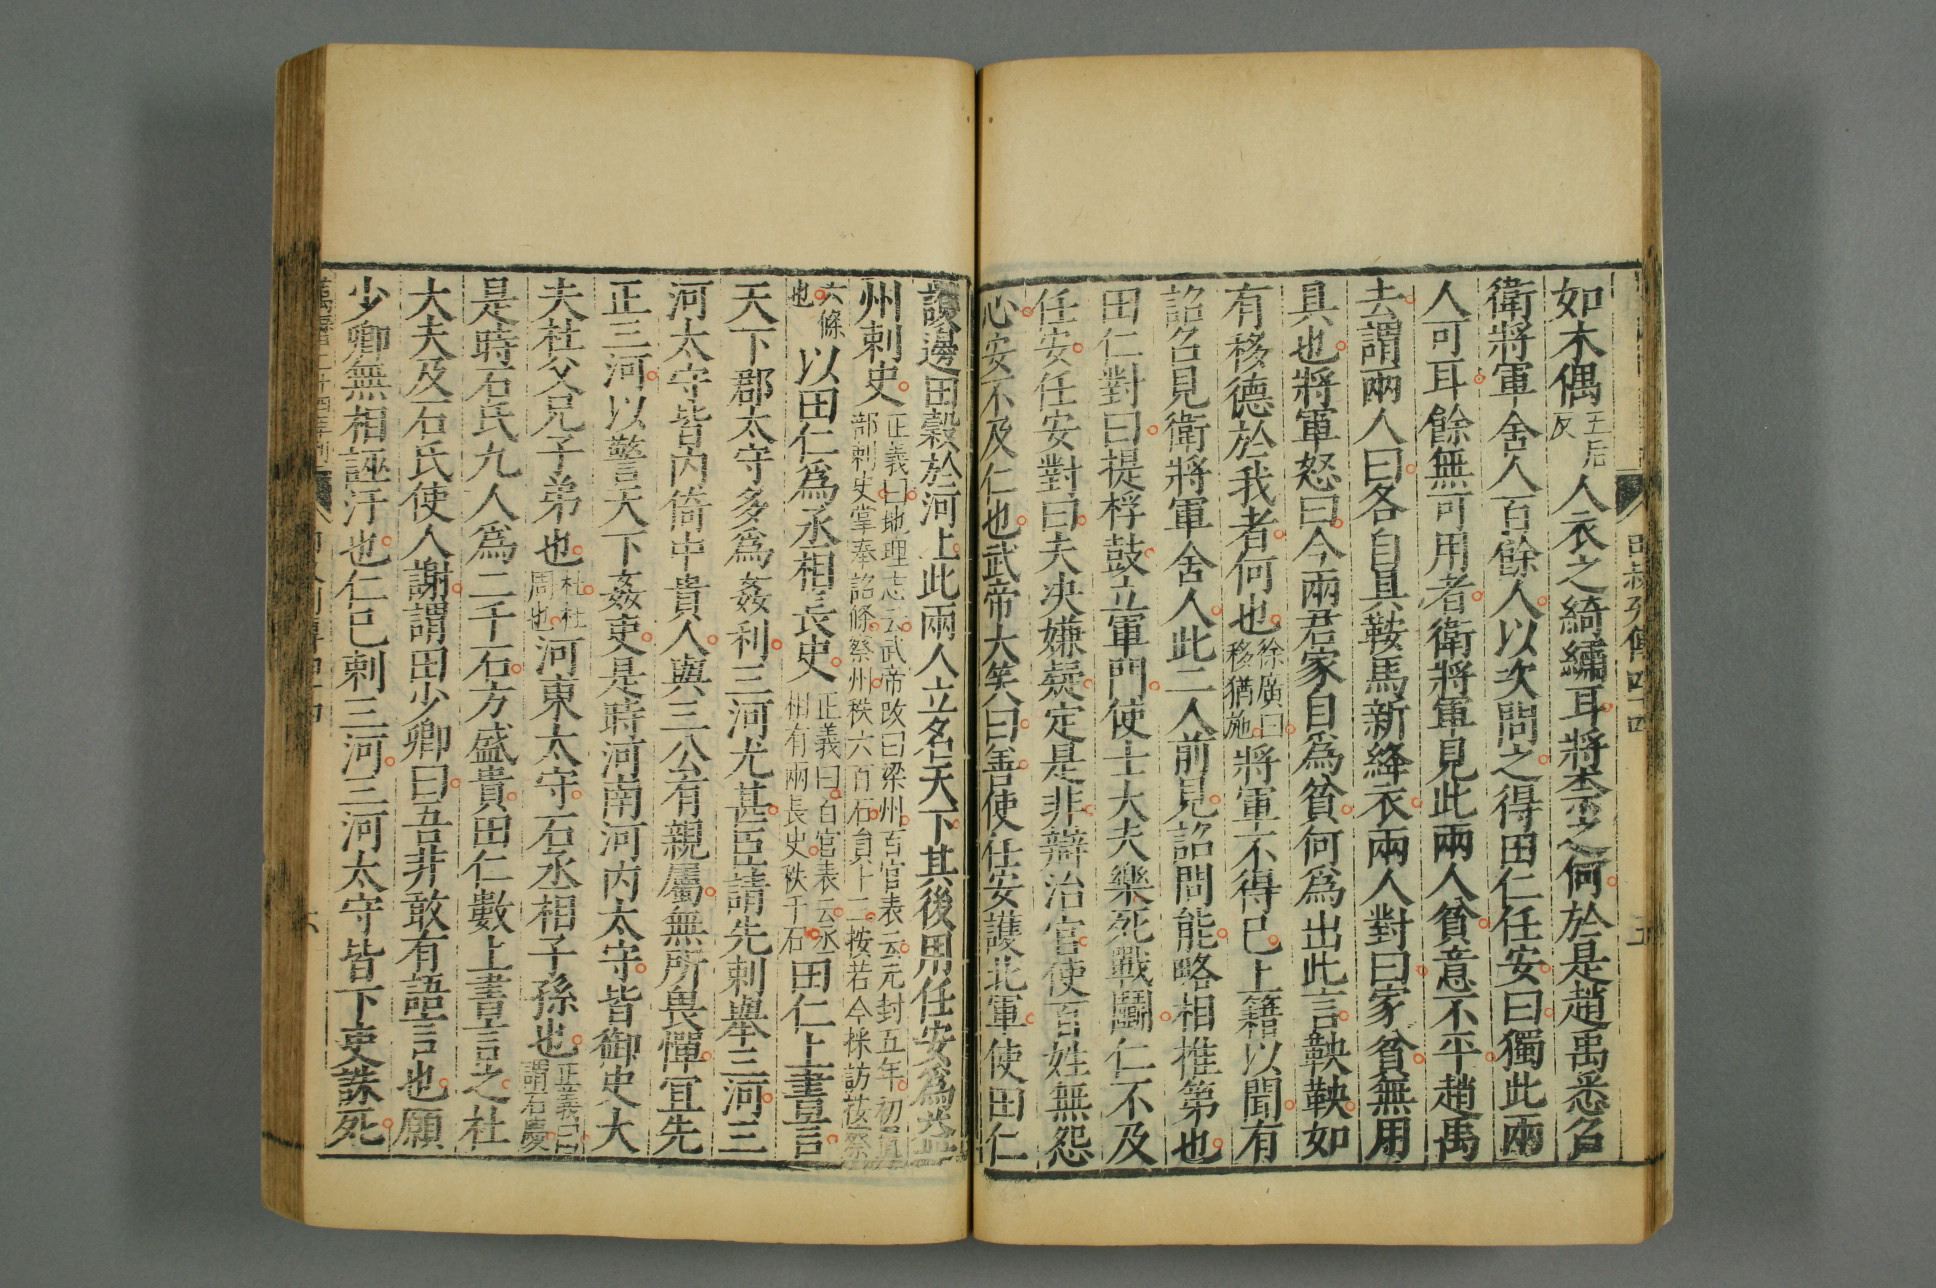 田叔列傳四十四
如木偶五后反人衣之綺繡耳將柰之何於是趙禹悉召
衛將軍舍人百餘人以次問之得田仁任安曰獨此兩
人可耳餘無可用者衛將軍見此兩人貧意不平趙禹
去謂兩人曰各自具鞍馬新絳衣兩人對曰家貧無用
具也將軍怒曰今兩君家自爲貧何爲出此言鞅鞅如
有移德於我者何也徐廣曰移猶施將軍不得已上籍以聞有
詔召見衛將軍舍人此二人前見詔問能略相推第也
田仁對曰提桴鼓立軍門使士大夫樂死戰鬬仁不及
任安任安對曰夫決嫌疑定是非辯治官使百姓無怨
心安不及仁也武帝大笑曰善使任安護北軍使田仁
護邊田穀於河上此兩人立名天下其後用任安爲益
州刺史正義曰地理志云武帝改曰梁州百官表云元封五年初置部刺史掌奉詔條察州秩六百石員十二按若今採訪按察
六條也以田仁爲丞相長史正義曰百官表云丞相有兩長史秩千石田仁上書言
天下郡太守多爲姦利三河尤甚臣請先刺舉三河三
河太守皆内倚中貴人與三公有親屬無所畏憚宜先
正三河以警天下姦吏是時河南河内太守皆御史大
夫杜父兄子弟也杜杜周也河東太守石丞相子孫也正義曰謂石慶
是時石氏九人爲二千石方盛貴田仁數上書言之杜
大夫及石氏使人謝謂田少卿曰吾非敢有語言也願
少卿無相誣汙也仁已刺三河三河太守皆下吏誅死